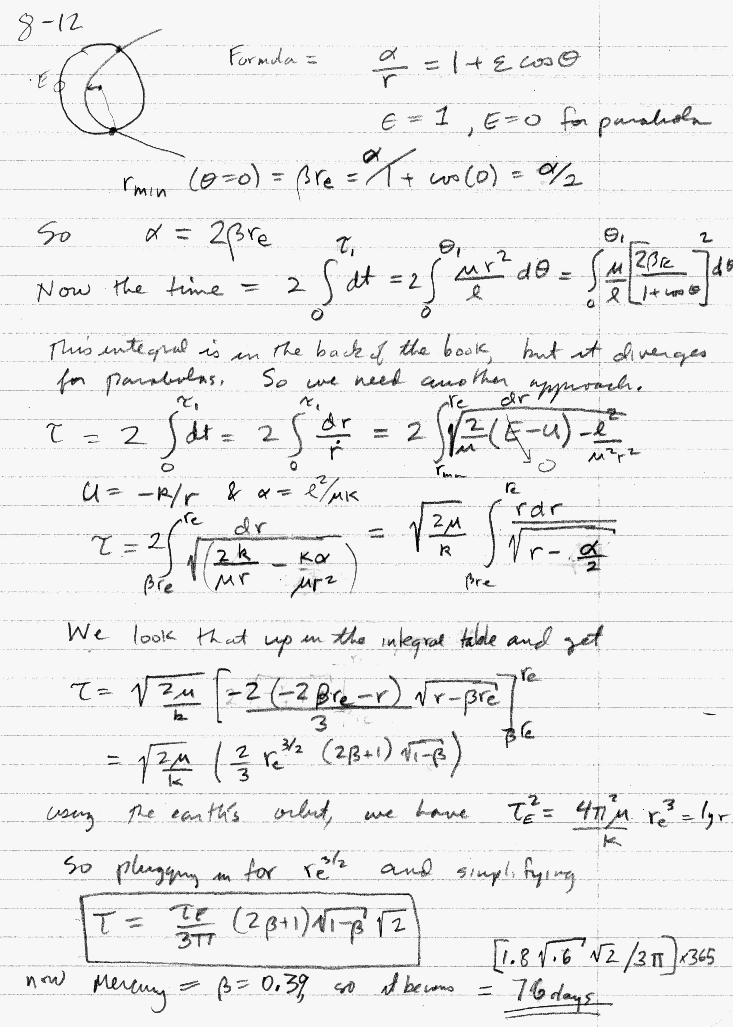 8-12
E0
Formula = α/r = 1 + ε cosθ
ε = 1 , E=0 for parabola
r_min (θ=0) = βr_e = α/1+ cos(0) = α/2
So α = 2βr_e
Now the time = 2 ∫_0^τ₁ dt = 2 ∫_0^θ₁ μr²/ℓ dθ = ∫_0^θ₁ μ/ℓ [2βr_e/1+cosθ]² dθ
This integral is in the back of the book, but it diverges
for parabolas. So we need another approach.
τ = 2 ∫_0^τ₁ dt = 2 ∫_0^τ₁ dr/ṙ = 2 ∫_r_min^r_e dr/√(2/μ (E-U) - ℓ²/μ²r²) → 0
U = -k/r & α = ℓ²/μk
τ = 2 ∫_βr_e^r_e dr/√(2k/μr - kα/μr²) = √(2μ/k) ∫_βr_e^r_e rdr/√(r - α/2)
We look that up in the integral table and get
τ = √(2μ/k) [-2(-2βr_e-r) √(r-βr_e)/3]_βr_e^r_e
= √(2μ/k) (2/3 r_e^3/2 (2β+1) √(1-β))
using the earth's orbit, we have τ_E² = 4π²μ/k r_e³ = 1yr
So plugging in for r_e^3/2 and simplifying
τ = τ_e/3π (2β+1) √(1-β) √2
[1.8 √.6 √2 /3π] x365
now Mercury = β = 0.39, so it becomes = 76 days